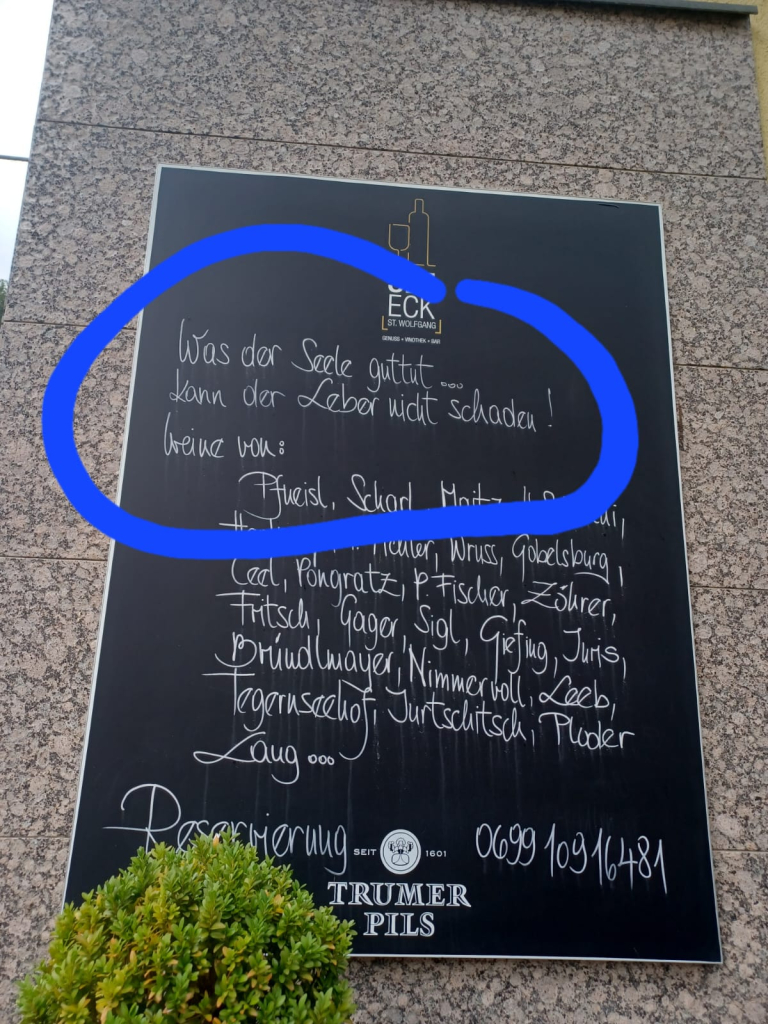 ECK
ST. WOLFGANG
GENUSS • VINOTHEK • BAR
Was der Seele guttut ...
kann der Leber nicht schaden!
Weine von:
Pfneisl, Scharl,
Wruss, Gobelsburg,
Ceel, Pongratz, P. Fischer, Zöhrer,
Fritsch, Gager, Sigl, Giefing, Juris,
Bründlmayer, Nimmervoll, Leeb,
Tegernseehof, Jurtschitsch, Ploder
Laug ...
Reservierung 0699 109 16481
SEIT 1601
TRUMER
PILS